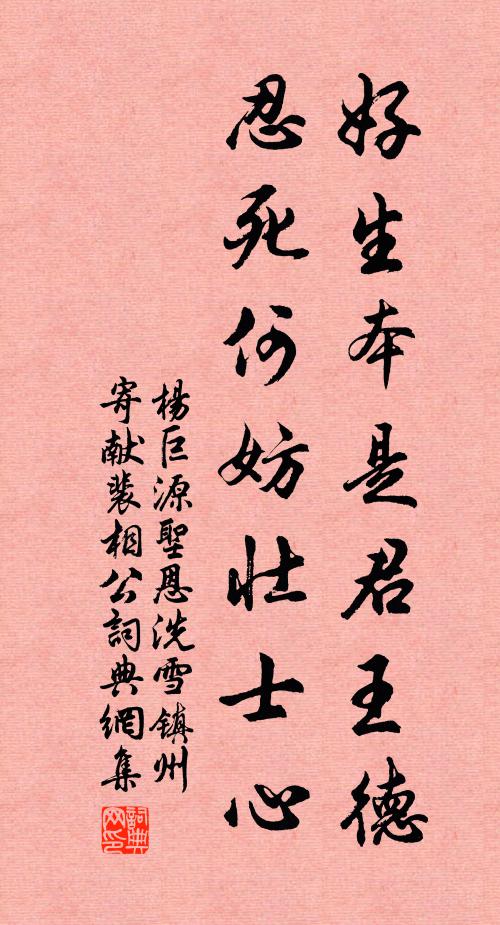 好生本是君王德
忍死何妨壮士心
楊巨源聖恩洗雪镇州
寄献裴相公詞典網集
詞典网印